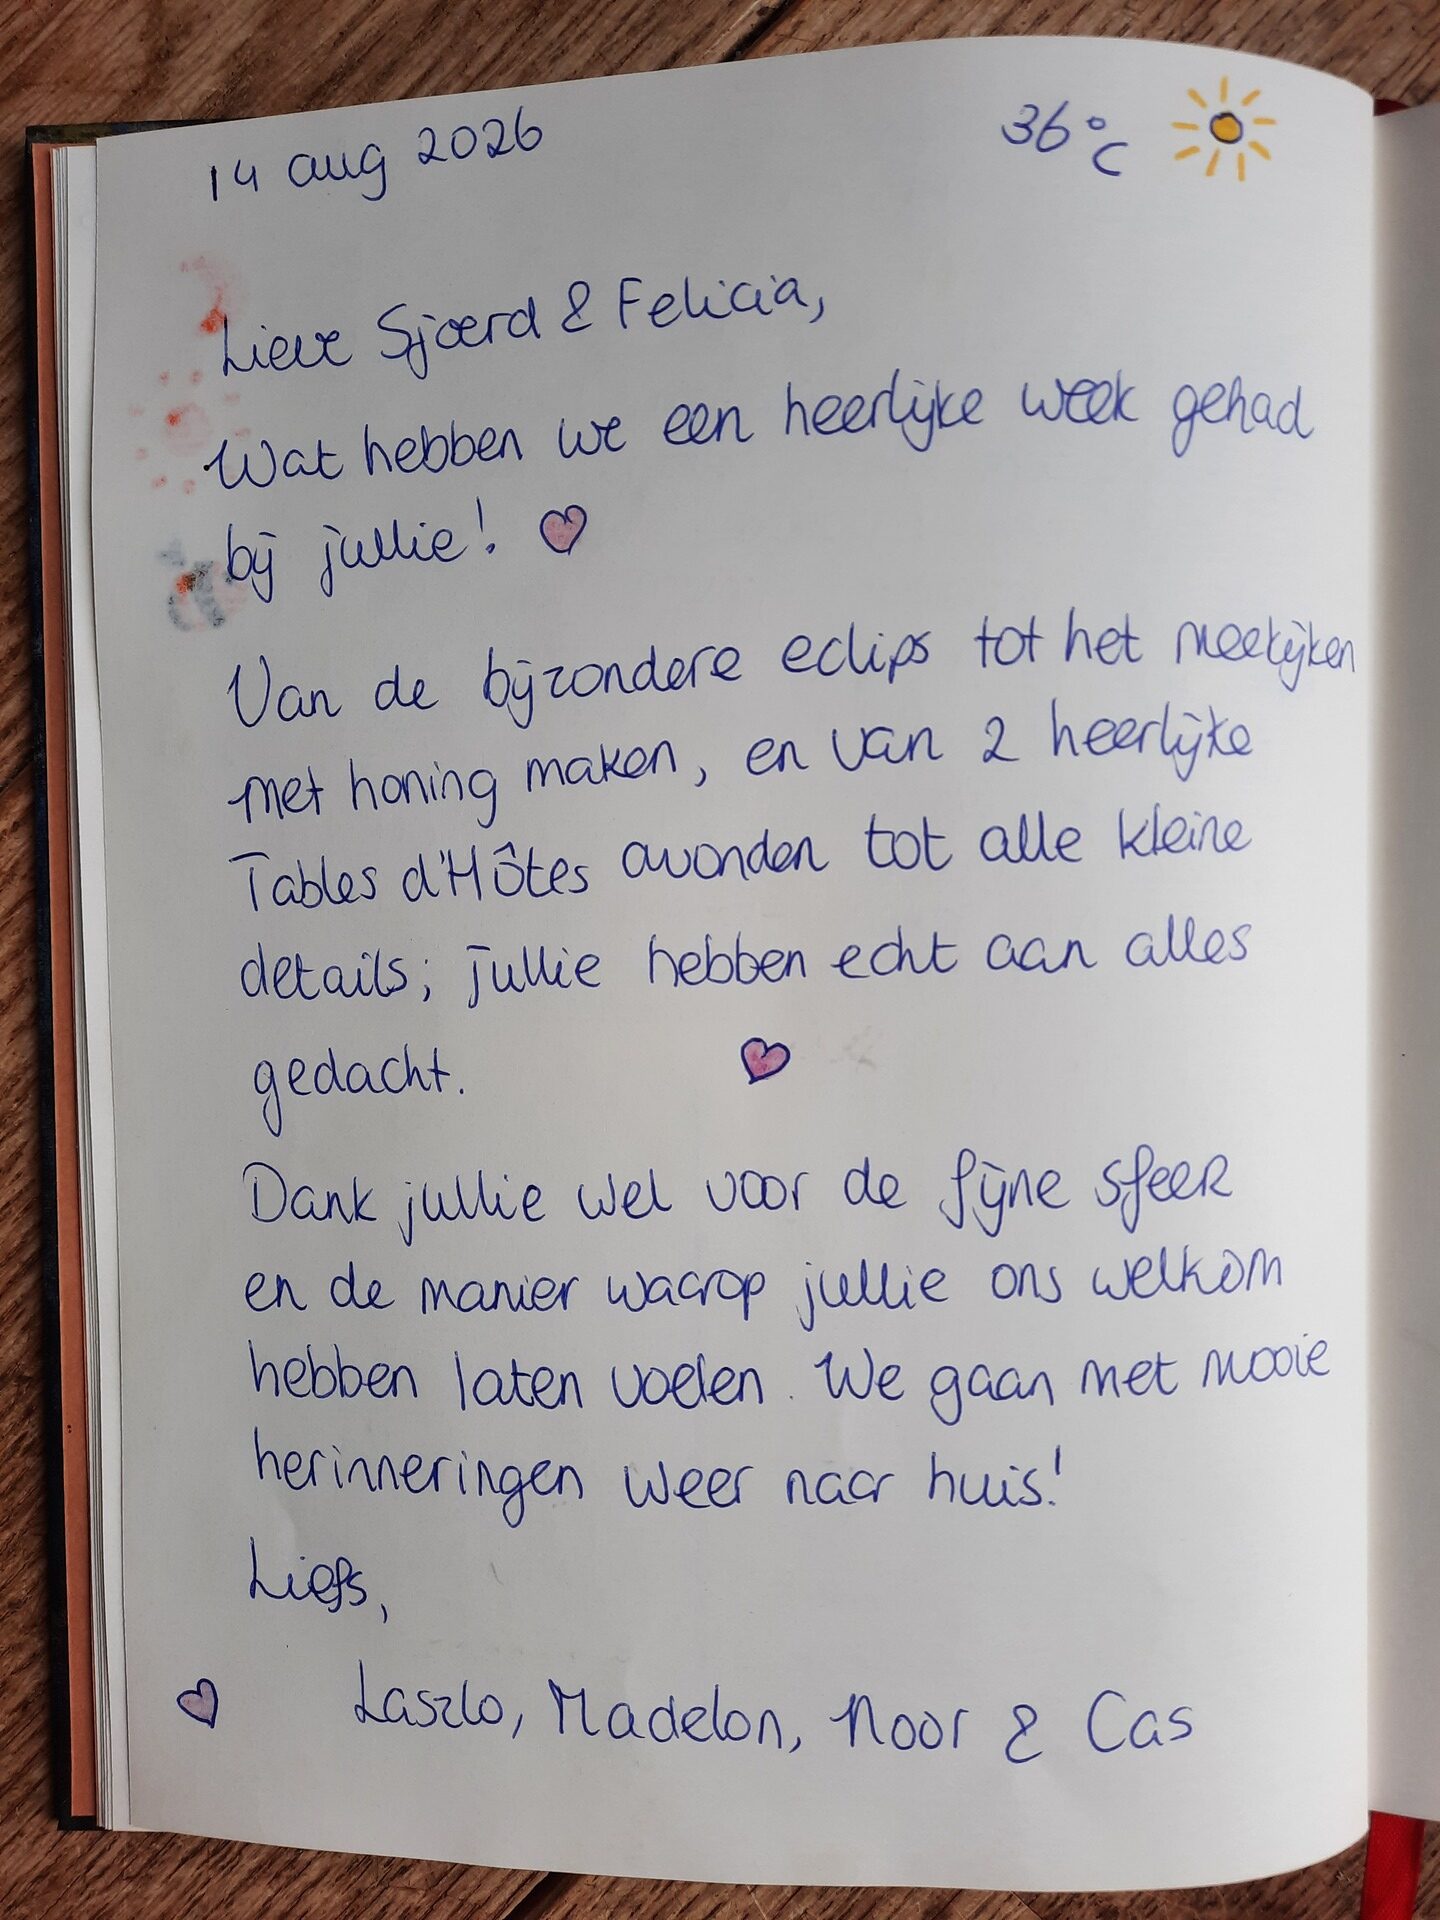 14 aug 2026 36°C
Lieve Sjoerd & Felicia,
Wat hebben we een heerlijke week gehad
bij jullie!
Van de bijzondere eclips tot het meekijken
met honing maken, en van 2 heerlijke
Tables d'Hôtes avonden tot alle kleine
details; jullie hebben echt aan alles
gedacht.
Dank jullie wel voor de fijne sfeer
en de manier waarop jullie ons welkom
hebben laten voelen. We gaan met mooie
herinneringen weer naar huis!
Liefs,
Laszlo, Madelon, Noor & Cas